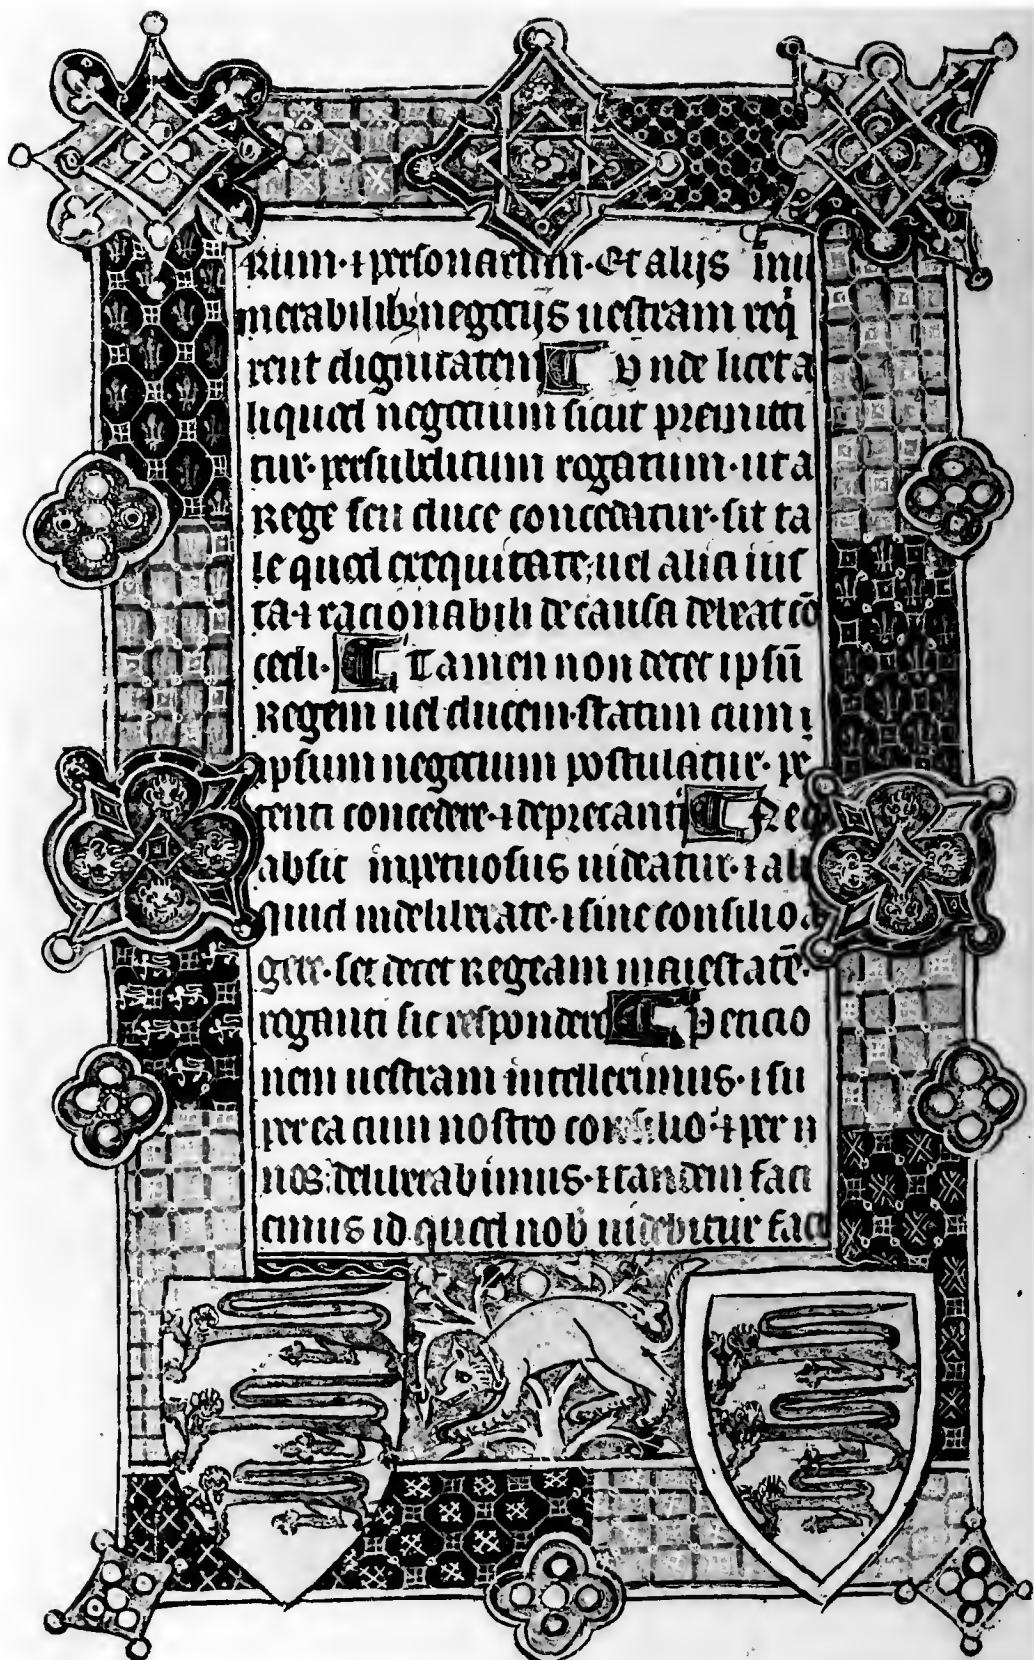 rum · ⁊ personarum · Et alijs innu
merabilibꝫ negocijs uestram req̇
rent dignitatem ¶ Unde licet a
liquod negocium sicut premitti
tur · per subditum rogatum · ut a
Rege seu duce concedatur · sit ta
le quod ex equitate; uel alia ius
ta · ⁊ racionabili de causa debeat cō
cedi · ¶ Tamen non decet ipsū
Regem uel ducem · statim cum i
ipsum negocium postulatur · pe
tenti concedere · ⁊ deprecanti ¶ Ne q̇
absit inpetuosus uideatur · ⁊ ali
quid indeliberate · ⁊ sine consilio a
gere · set decet Regeam maiestatē ·
roganti sic respondere ¶ Peticio
nem uestram intelleximus · ⁊ su
per ea cum nostro consilio · ⁊ per
nos deliberabimus · ⁊ tandem faci
emus id quod nob uidebitur faci